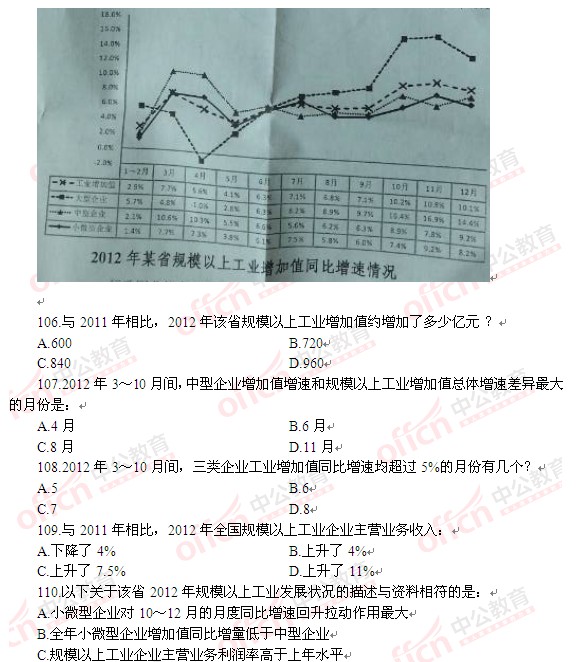 18.0%
16.0%
14.0%
12.0%
10.0%
8.0%
6.0%
4.0%
2.0%
0.0%
-2.0%
1～2月 3月 4月 5月 6月 7月 8月 9月 10月 11月 12月
工业增加值 2.9% 7.7% 5.6% 4.1% 7.1% 6.8% 7.1% 10.2% 10.1%
大型企业 5.7% 4.8% 2.8% 8.2% 8.9% 9.7% 16.4% 16.9% 14.4%
中型企业 10.6% 10.3% 5.5% 5.6% 6.2% 6.3% 8.9% 7.8% 9.2%
小微型企业 1.4% 7.7% 7.3% 3.9% 7.5% 5.8% 6.0% 7.4% 9.2% 8.2%
2012 年某省规模以上工业增加值同比增速情况
106.与 2011 年相比，2012 年该省规模以上工业增加值约增加了多少亿元 ？
A.600 B.720
C.840 D.960
107.2012 年 3～10 月间,中型企业增加值增速和规模以上工业增加值总体增速差异最大
的月份是：
A.4 月 B.6 月
C.8 月 D.11 月
108.2012 年 3～10 月间，三类企业工业增加值同比增速均超过 5%的月份有几个？
A.5 B.6
C.7 D.8
109.与 2011 年相比，2012 年全国规模以上工业企业主营业务收入：
A.下降了 4% B.上升了 4%
C.上升了 7.5% D.上升了 11%
110.以下关于该省 2012 年规模以上工业发展状况的描述与资料相符的是：
A.小微型企业对 10～12 月的月度同比增速回升拉动作用最大
B.全年小微型企业增加值同比增量低于中型企业
C.规模以上工业企业主营业务利润率高于上年水平
offcn 中公教育